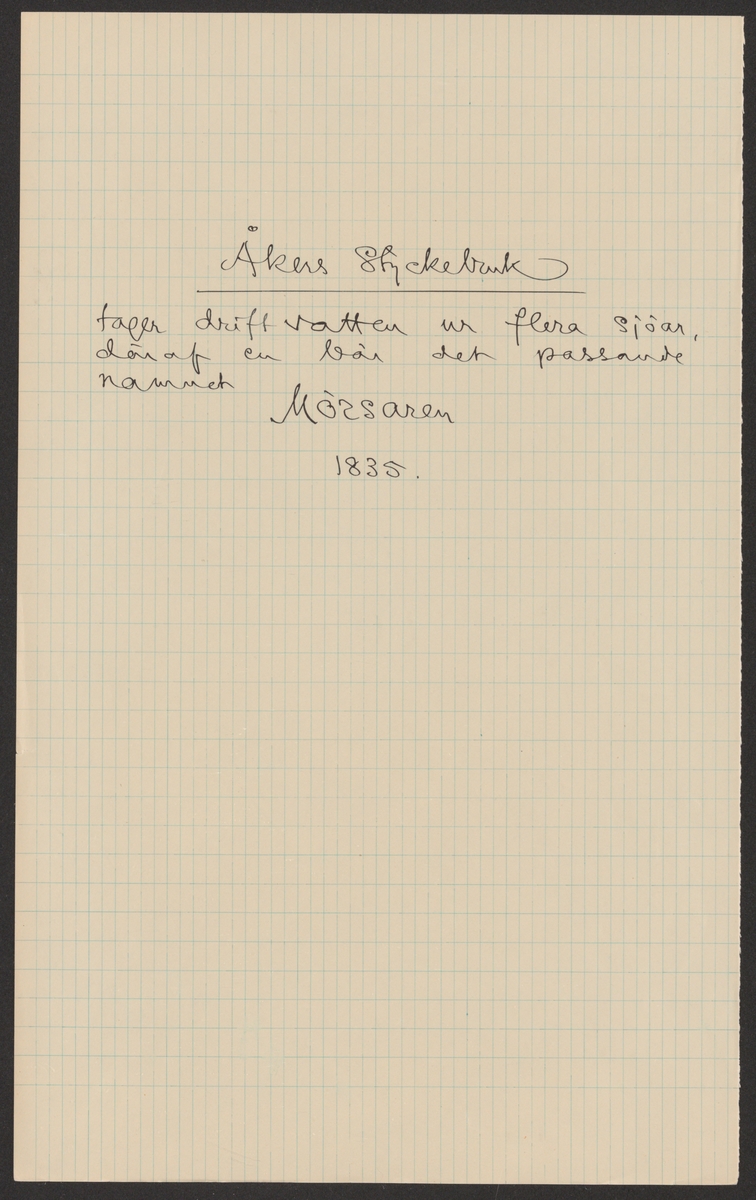 Åkers Styckebruk
tager driftvatten ur flera sjöar,
däraf en bär det passande
namnet
Mörsaren
1835.